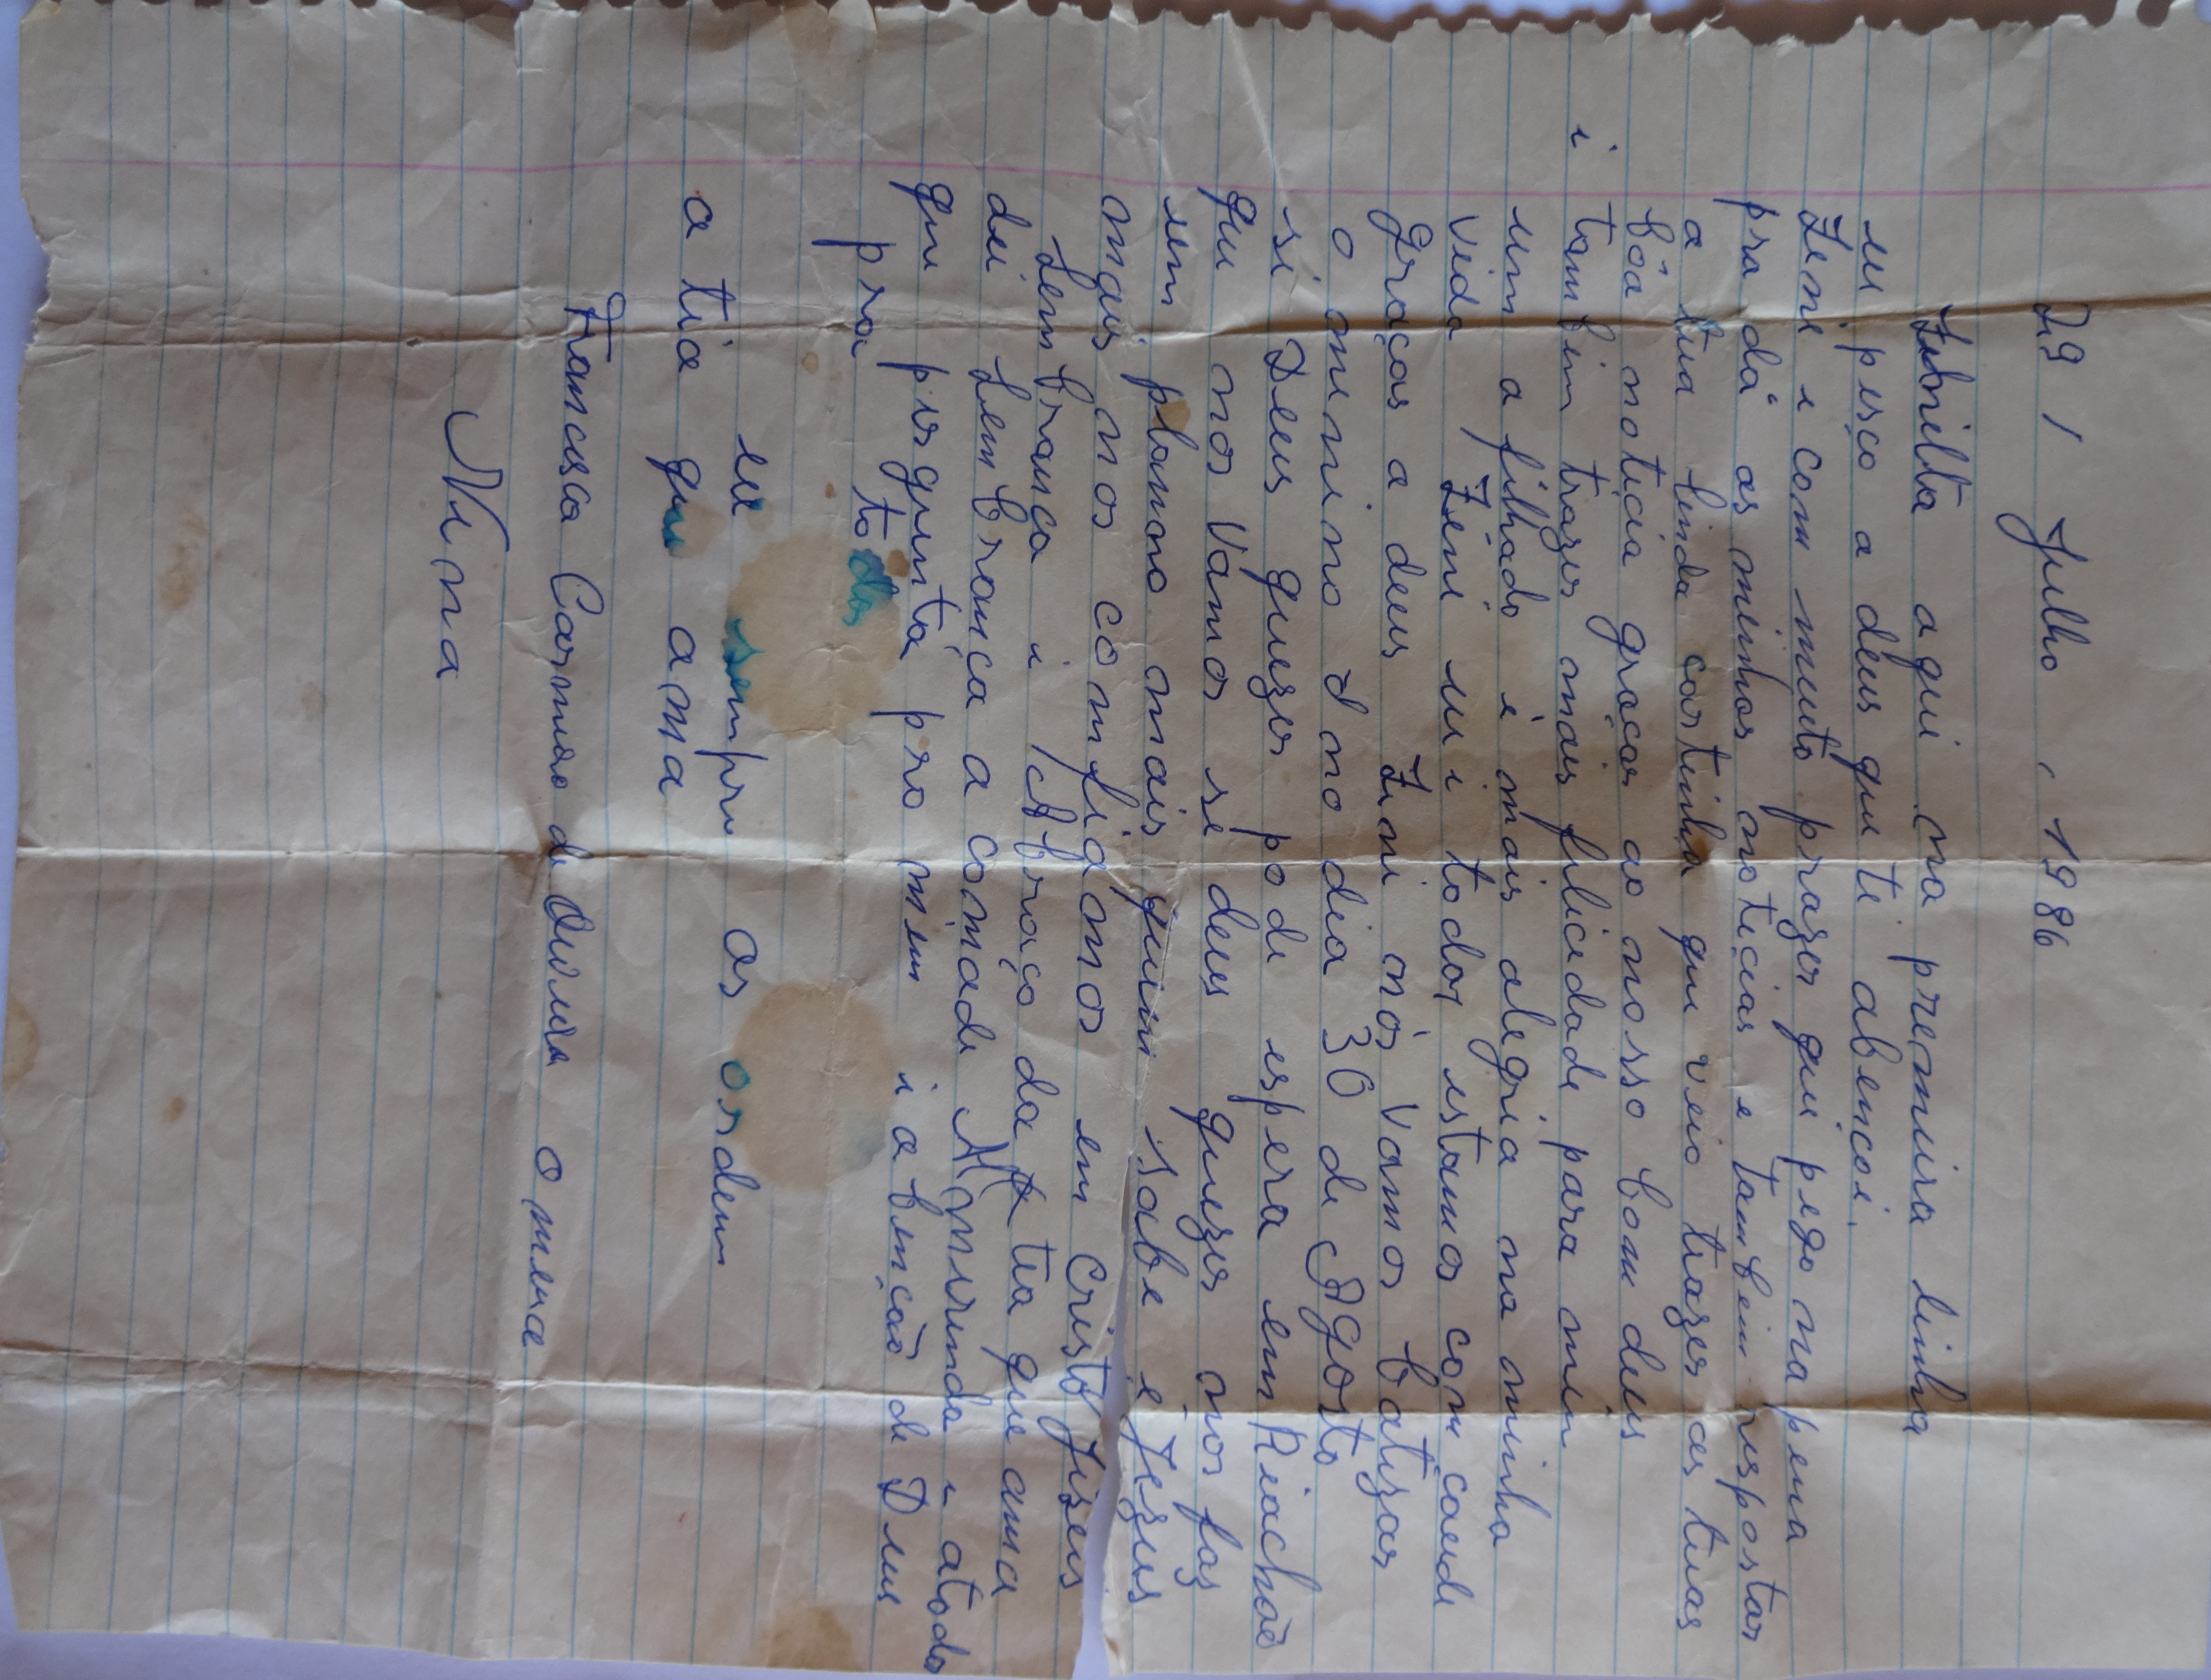 29 / Julho, 1986
Zenilta aqui na premeira linha
eu pesço a deus que ti abencoi.
Zeni e com muito prazer que pego na pena
pra dá as minhas noticias e tambem respostar
a tua linda cartinha que veio trazer as tuas
bôa noticia graças ao nosso bom deus
i tambem trazer mais felicidade para mim
um afilhado é mais alegria na minha
vida Zeni eu i todos estamos com çaude
graças a deus Zeni nós vamos batizar
o menino I no dia 30 de Agosto
si Deus quezer pode espera em Riachaõ
que nos vamos se deus quezer nos faz
um plano mais quem sabe é Jezus
mais nos comfiamos em Cristo Jizeus
Lembranca i Abraço da tia que ama
dei Lembrança a comade Mirinda i atoda
que pergunta pro mim i abençaõ de Deus
pra todos
eu sempre as ordem
a tia que ama
Francisca Carmeo de Oliveira o mesma
Nena